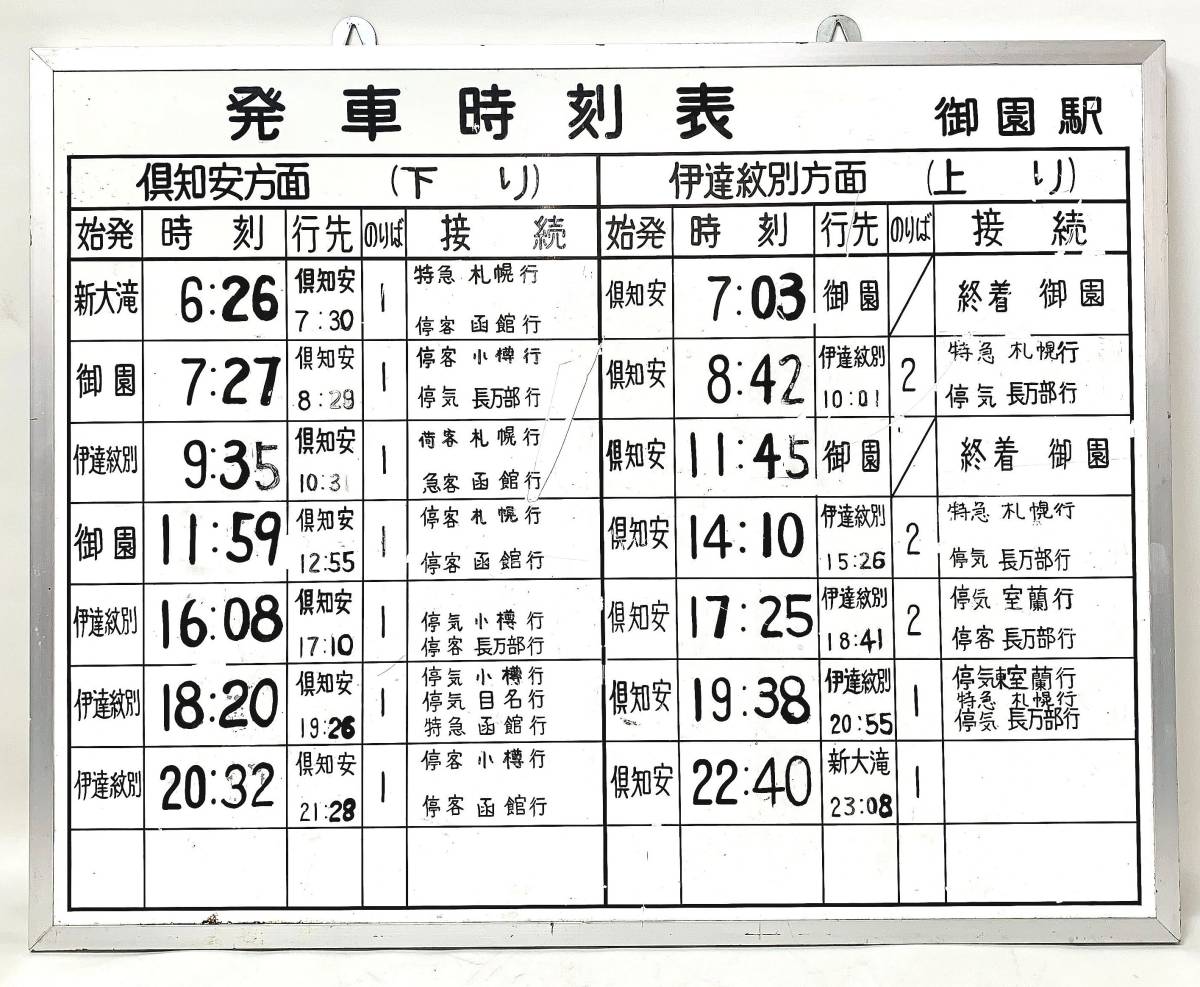 発車時刻表 御園駅
倶知安方面 (下り) 伊達紋別方面 (上り)
始発 時刻 行先 のりば 接続 始発 時刻 行先 のりば 接続
新大滝 6:26 倶知安 7:30 1 特急 札幌行
停客 函館行
倶知安 7:03 御園 終着 御園
御園 7:27 倶知安 8:29 1 停客 小樽行
停気 長万部行
倶知安 8:42 伊達紋別 10:01 2 特急 札幌行
停気 長万部行
伊達紋別 9:35 倶知安 10:31 1 荷客 札幌行
急客 函館行
倶知安 11:45 御園 終着 御園
御園 11:59 倶知安 12:55 1 停客 札幌行
停客 函館行
倶知安 14:10 伊達紋別 15:26 2 特急 札幌行
停気 長万部行
伊達紋別 16:08 倶知安 17:10 1 停気 小樽行
停客 長万部行
倶知安 17:25 伊達紋別 18:41 2 停気 室蘭行
停客 長万部行
伊達紋別 18:20 倶知安 19:26 1 停気 小樽行
停気 目名行
特急 函館行
倶知安 19:38 伊達紋別 20:55 1 停気東室蘭行
特急 札幌行
停気 長万部行
伊達紋別 20:32 倶知安 21:28 1 停客 小樽行
停客 函館行
倶知安 22:40 新大滝 23:08 1